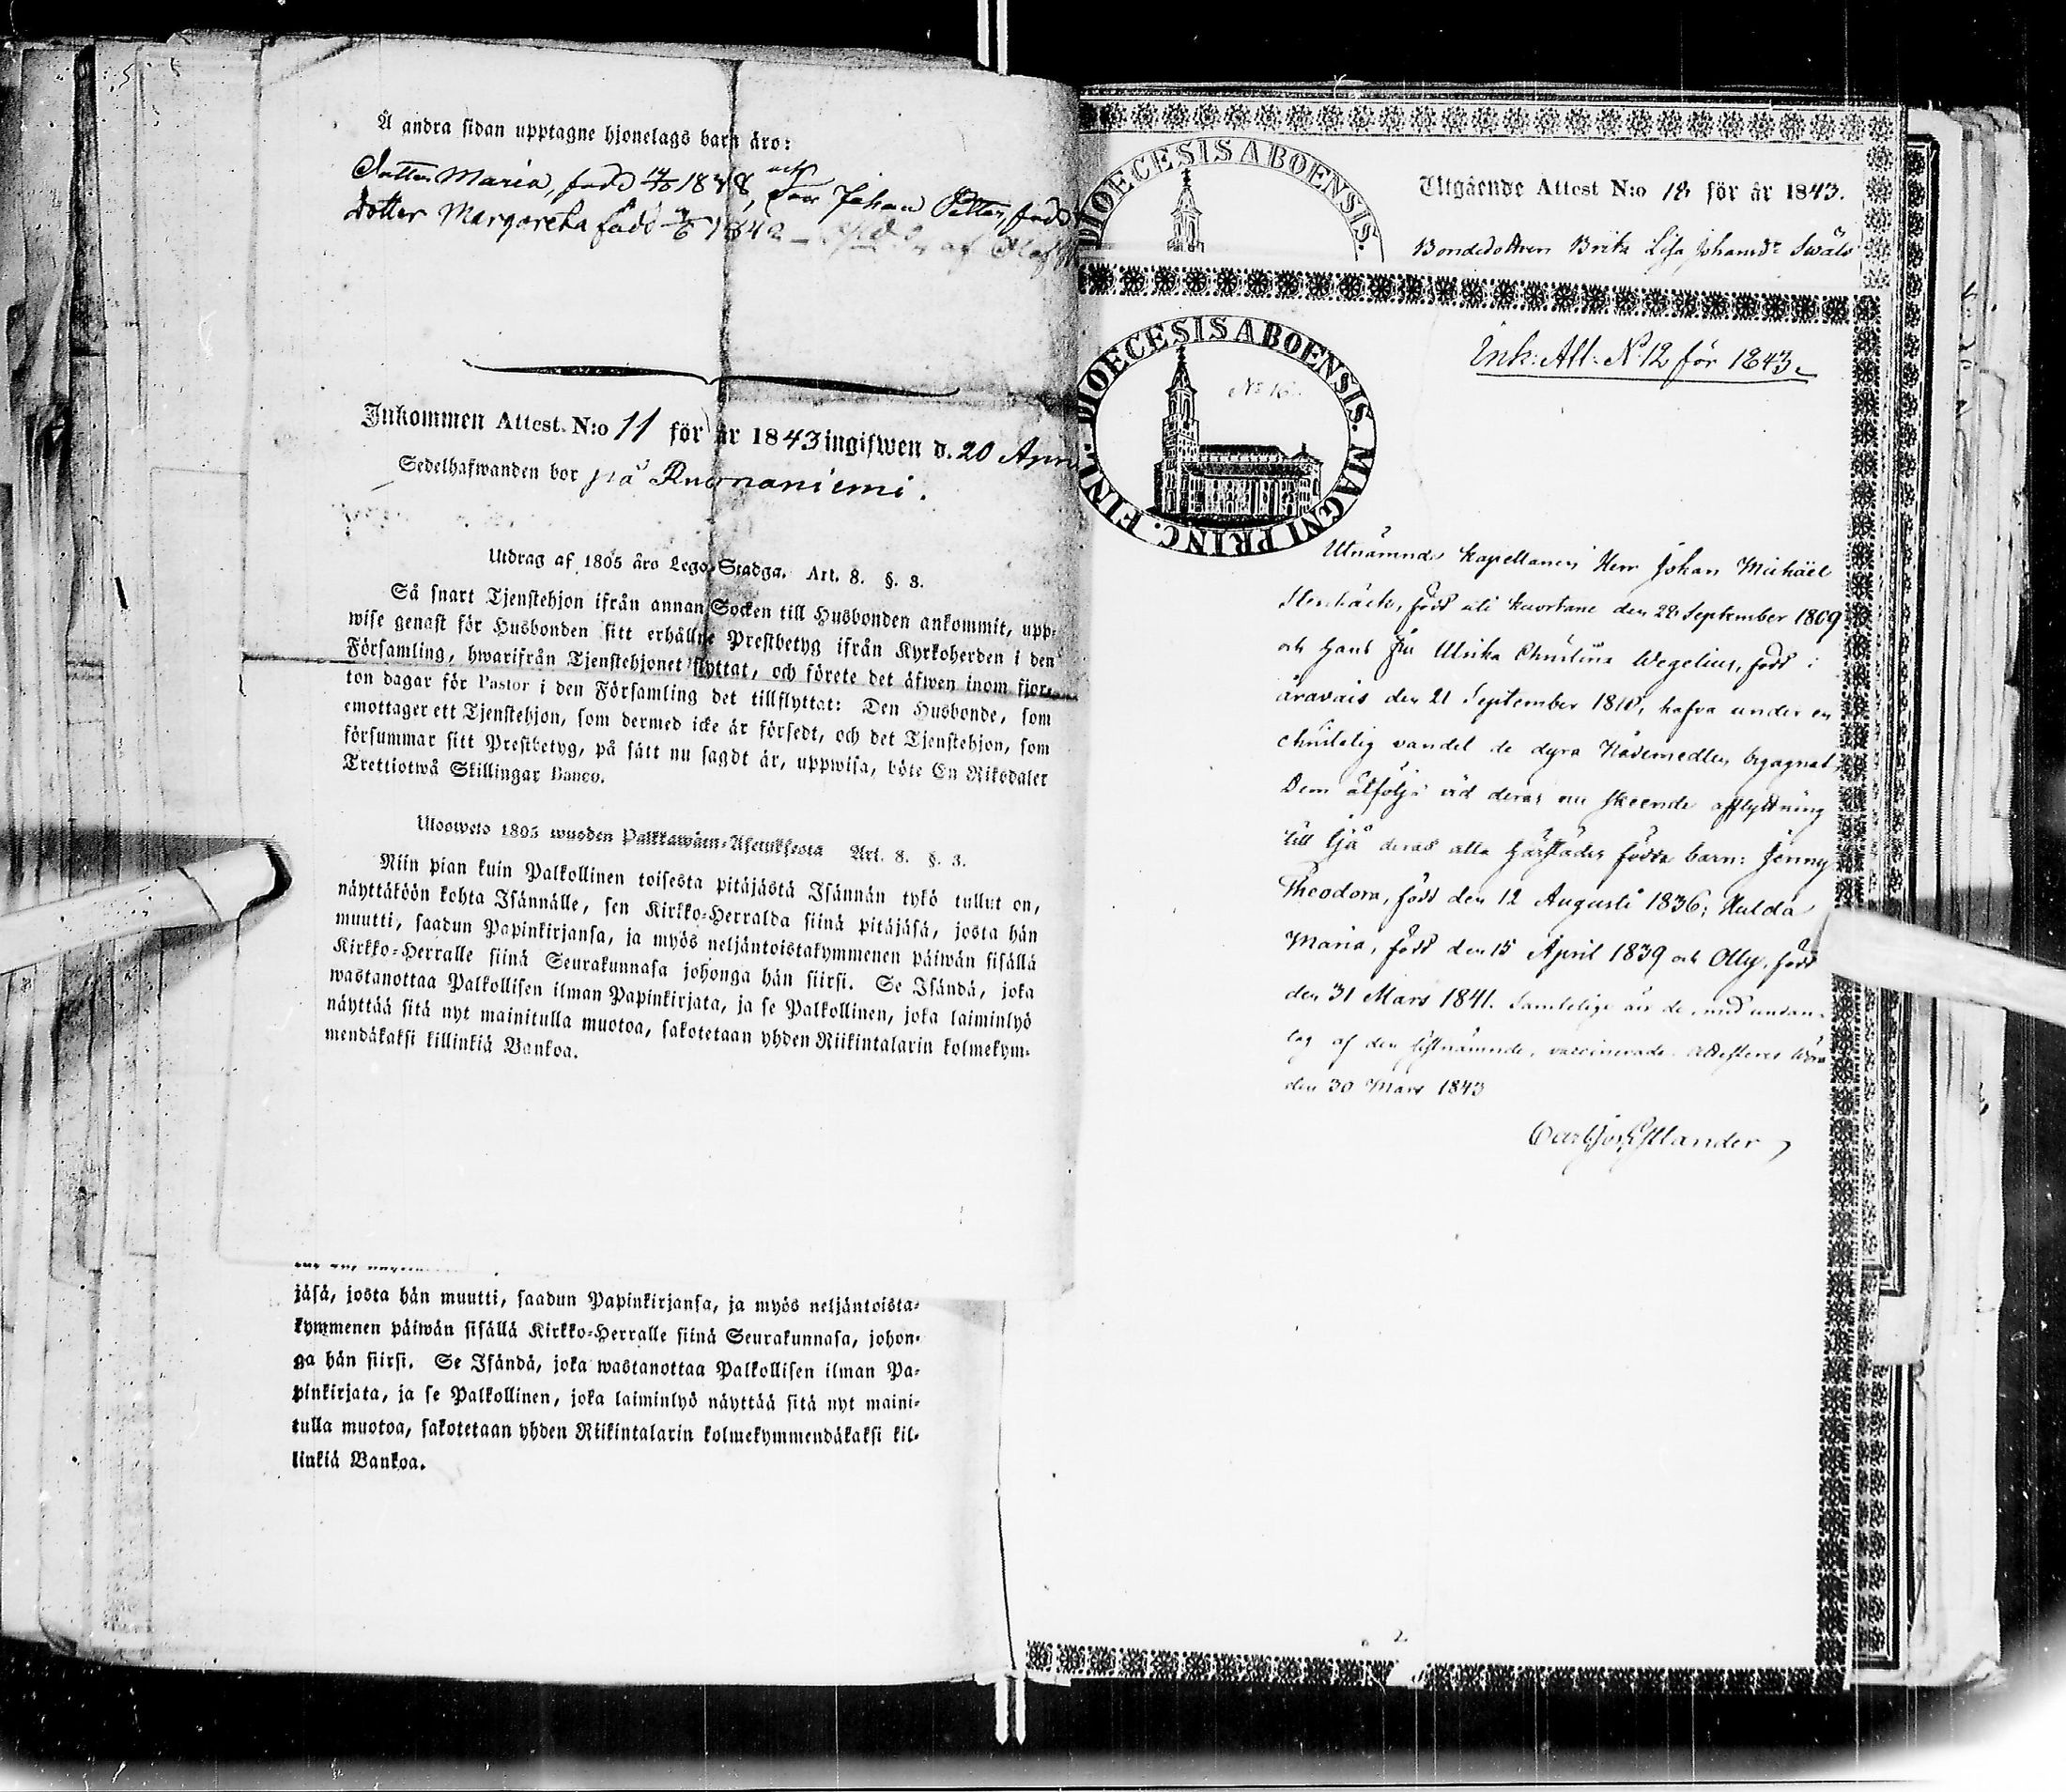 Å andra sidan upptagne hjonelags barn äro:
Dotter Maria, född 1838, och Son Johan Petter, född
Dotter Margareta född 1842
Inkommen Attest. N:o 11 för år 1843 ingifwen d. 20 April
Sedelhafwanden bor på Ruonaniemi.
Utdrag af 1805 års Lego-Stadga. Art. 8. §. 3.
Så snart Tjenstehjon ifrån annan Socken till Husbonden ankommit, upp-
wise genast för Husbonden sitt erhållne Prestbetyg ifrån Kyrkoherden i den
Församling, hwarifrån Tjenstehjonet flyttat, och förete det äfwen inom fjor-
ton dagar för Pastor i den Församling det tillflyttat: Den Husbonde, som
emottager ett Tjenstehjon, som dermed icke är försedt, och det Tjenstehjon, som
försummar sitt Prestbetyg, på sätt nu sagdt är, uppwisa, böte En Riksdaler
Trettiotwå Skillingar Banco.
Ulosweto 1805 wuoden Palkkawäen-Asetuksesta Art. 8. §. 3.
Niin pian kuin Palkollinen toisesta pitäjästä Isännän tykö tullut on,
näyttäköön kohta Isännälle, sen Kirkko-Herralda siinä pitäjäsä, josta hän
muutti, saadun Papinkirjansa, ja myös neljäntoistakymmenen päiwän sisällä
Kirkko-Herralle siinä Seurakunnasa johonga hän siirsi. Se Isändä, joka
wastanottaa Palkollisen ilman Papinkirjata, ja se Palkollinen, joka laiminlyö
näyttää sitä nyt mainitulla muotoa, sakotetaan yhden Riikintalarin kolmekym-
mendäkaksi killinkiä Bankoa.
jäsä, josta hän muutti, saadun Papinkirjansa, ja myös neljäntoista-
kymmenen päiwän sisällä Kirkko-Herralle siinä Seurakunnasa, johon-
ga hän siirsi. Se Isändä, joka wastanottaa Palkollisen ilman Pa-
pinkirjata, ja se Palkollinen, joka laiminlyö näyttää sitä nyt maini-
tulla muotoa, sakotetaan yhden Riikintalarin kolmekymmendäkaksi kil-
linkiä Bankoa.
DIOECESIS ABOENSIS.
Utgående Attest N:o 12 för år 1843.
Bondedottren Brita Lisa Johansdr Swäls
DIOECESIS ABOENSIS. MAGNI PRINC. FINL.
No 16.
Ink: Att: No 12 för 1843.
Utnämnde Kapellanen Herr Johan Michäel
Stenbäck, född uti Kuortane den 28 September 1809
och hans fru Ulrika Christina Wegelius, född i
Oravais den 21 September 1810, hafva under en
christelig vandel de dyra Nådemedlen begagnat.
Dem åtfölja vid deras nu skeende afflyttning
till Ijå deras alla härstädes födda barn: Jenny
Theodora, född den 12 Augusti 1836; Hulda
Maria, född den 15 April 1839 och Olly, född
den 31 Mars 1841. Samtelige äro de, med undan-
tag af den sistnämnde, vaccinerade. Attesteras Wörå
den 30 Mars 1843
Carl Estlander